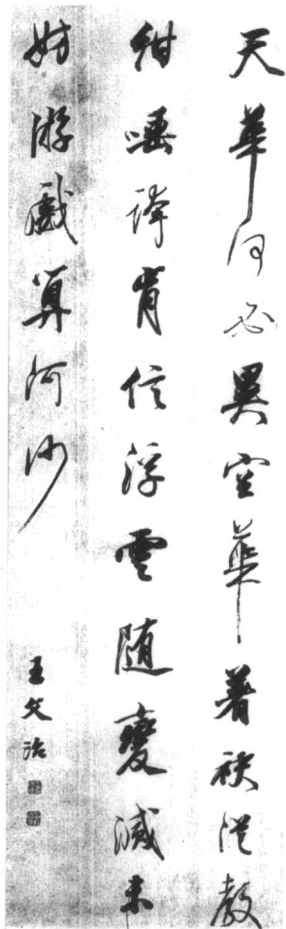 天華何必異空華著袂從教
紺唾誇肯信浮雲随變滅未
妨游戲算河沙
王文治